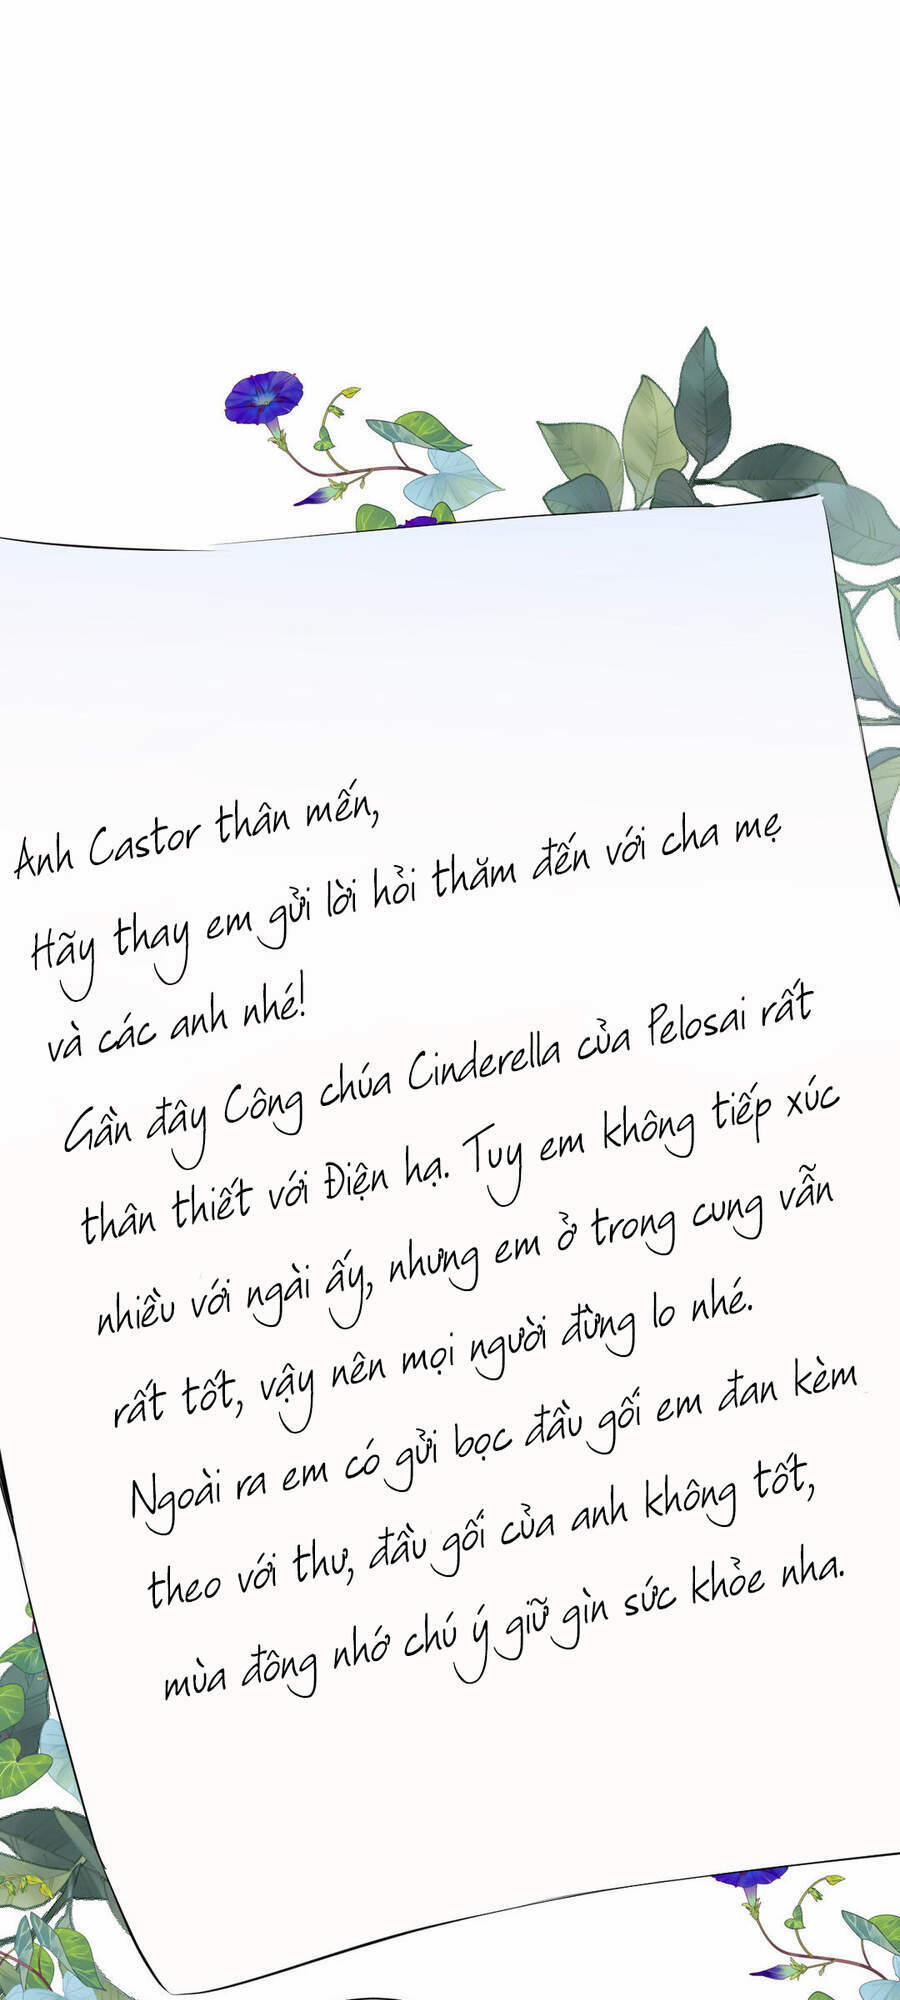 Anh Castor thân mến,
Hãy thay em gửi lời hỏi thăm đến với cha mẹ
và các anh nhé!
Gần đây Công chúa Cinderella của Pelosai rất
thân thiết với Điện hạ. Tuy em không tiếp xúc
nhiều với ngài ấy, nhưng em ở trong cung vẫn
rất tốt, vậy nên mọi người đừng lo nhé.
Ngoài ra em có gửi bọc đầu gối em đan kèm
theo với thư, đầu gối của anh không tốt,
mùa đông nhớ chú ý giữ gìn sức khỏe nha.